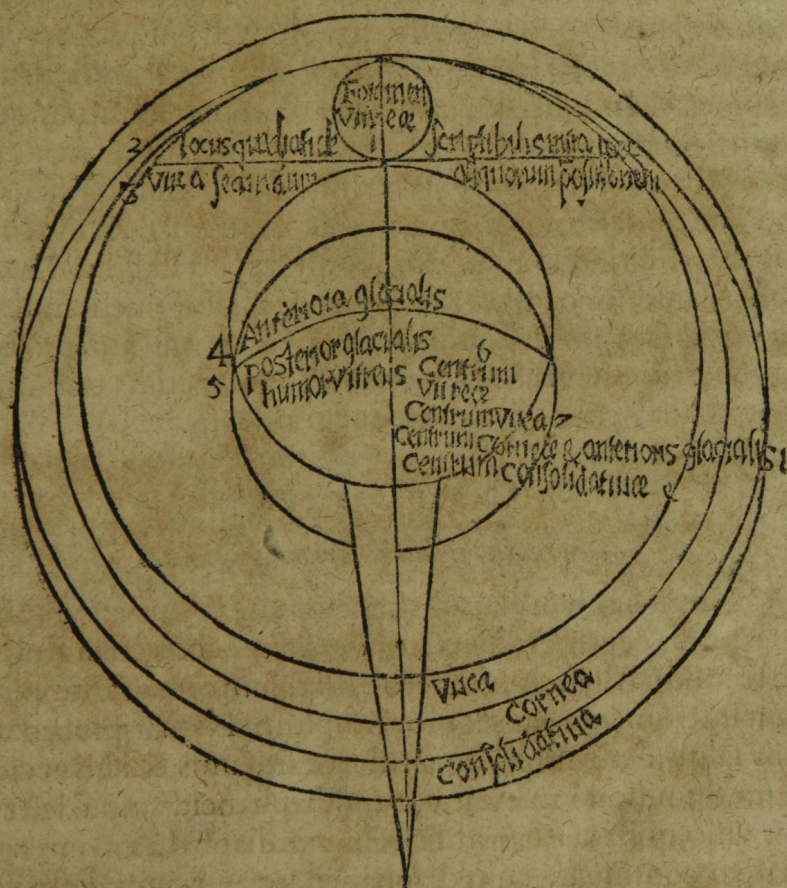 Foramen
vueæ
1
2 locus quadratide
3 vuea secundum
aliquorum positionem
4 Anteriora glacialis
posterior glacialis
5 humor vitreus
6
Centrum
vitreæ
Centrum vuea 7
Centrum Corneæ & anterioris glacialis
Centrum Consolidatiuæ
Vuea
Cornea
Consolidatiua